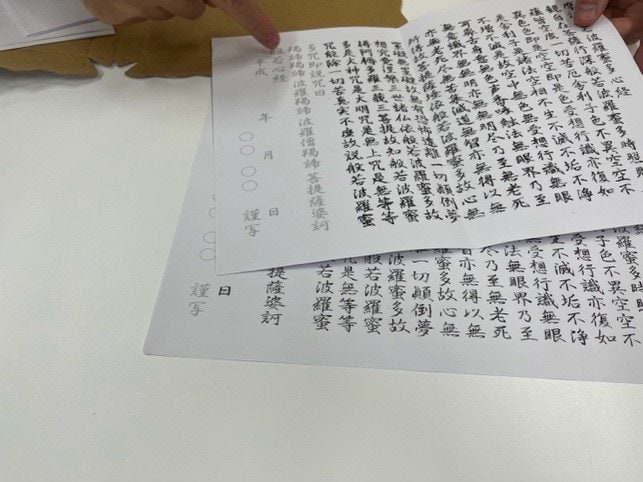 波羅蜜多心経
観自在菩薩行深般若波羅蜜多時照見五
蘊皆空度一切苦厄舎利子色不異空空不
異色色即是空空即是色受想行識亦復如
是舎利子是諸法空相不生不滅不垢不浄
不増不減是故空中無色無受想行識無眼
耳鼻舌身意無色声香味触法無眼界乃至
無意識界無無明亦無無明尽乃至無老死
亦無老死尽無苦集滅道無智亦無得以無
所得故菩提薩埵依般若波羅蜜多故心無
罣礙無罣礙故無有恐怖遠離一切顛倒夢
想究竟涅槃三世諸仏依般若波羅蜜多故
得阿耨多羅三藐三菩提故知般若波羅蜜
多是大神咒是大明咒是無上咒是無等等
咒能除一切苦真実不虚故説般若波羅蜜
多咒即説咒曰
羯諦羯諦波羅羯諦波羅僧羯諦菩提薩婆訶
般若心経
平成 年 月 日
○○○○ 謹写
色不異空空不
受想行識亦復如
不滅不垢不浄
受想行識無眼
法無眼界乃至
尽乃至無老死
亦無得以無
羅蜜多故心無
一切顛倒夢
波羅蜜多故
般若波羅蜜
咒是無等等
若波羅蜜
提薩婆訶
日
○○ 謹写